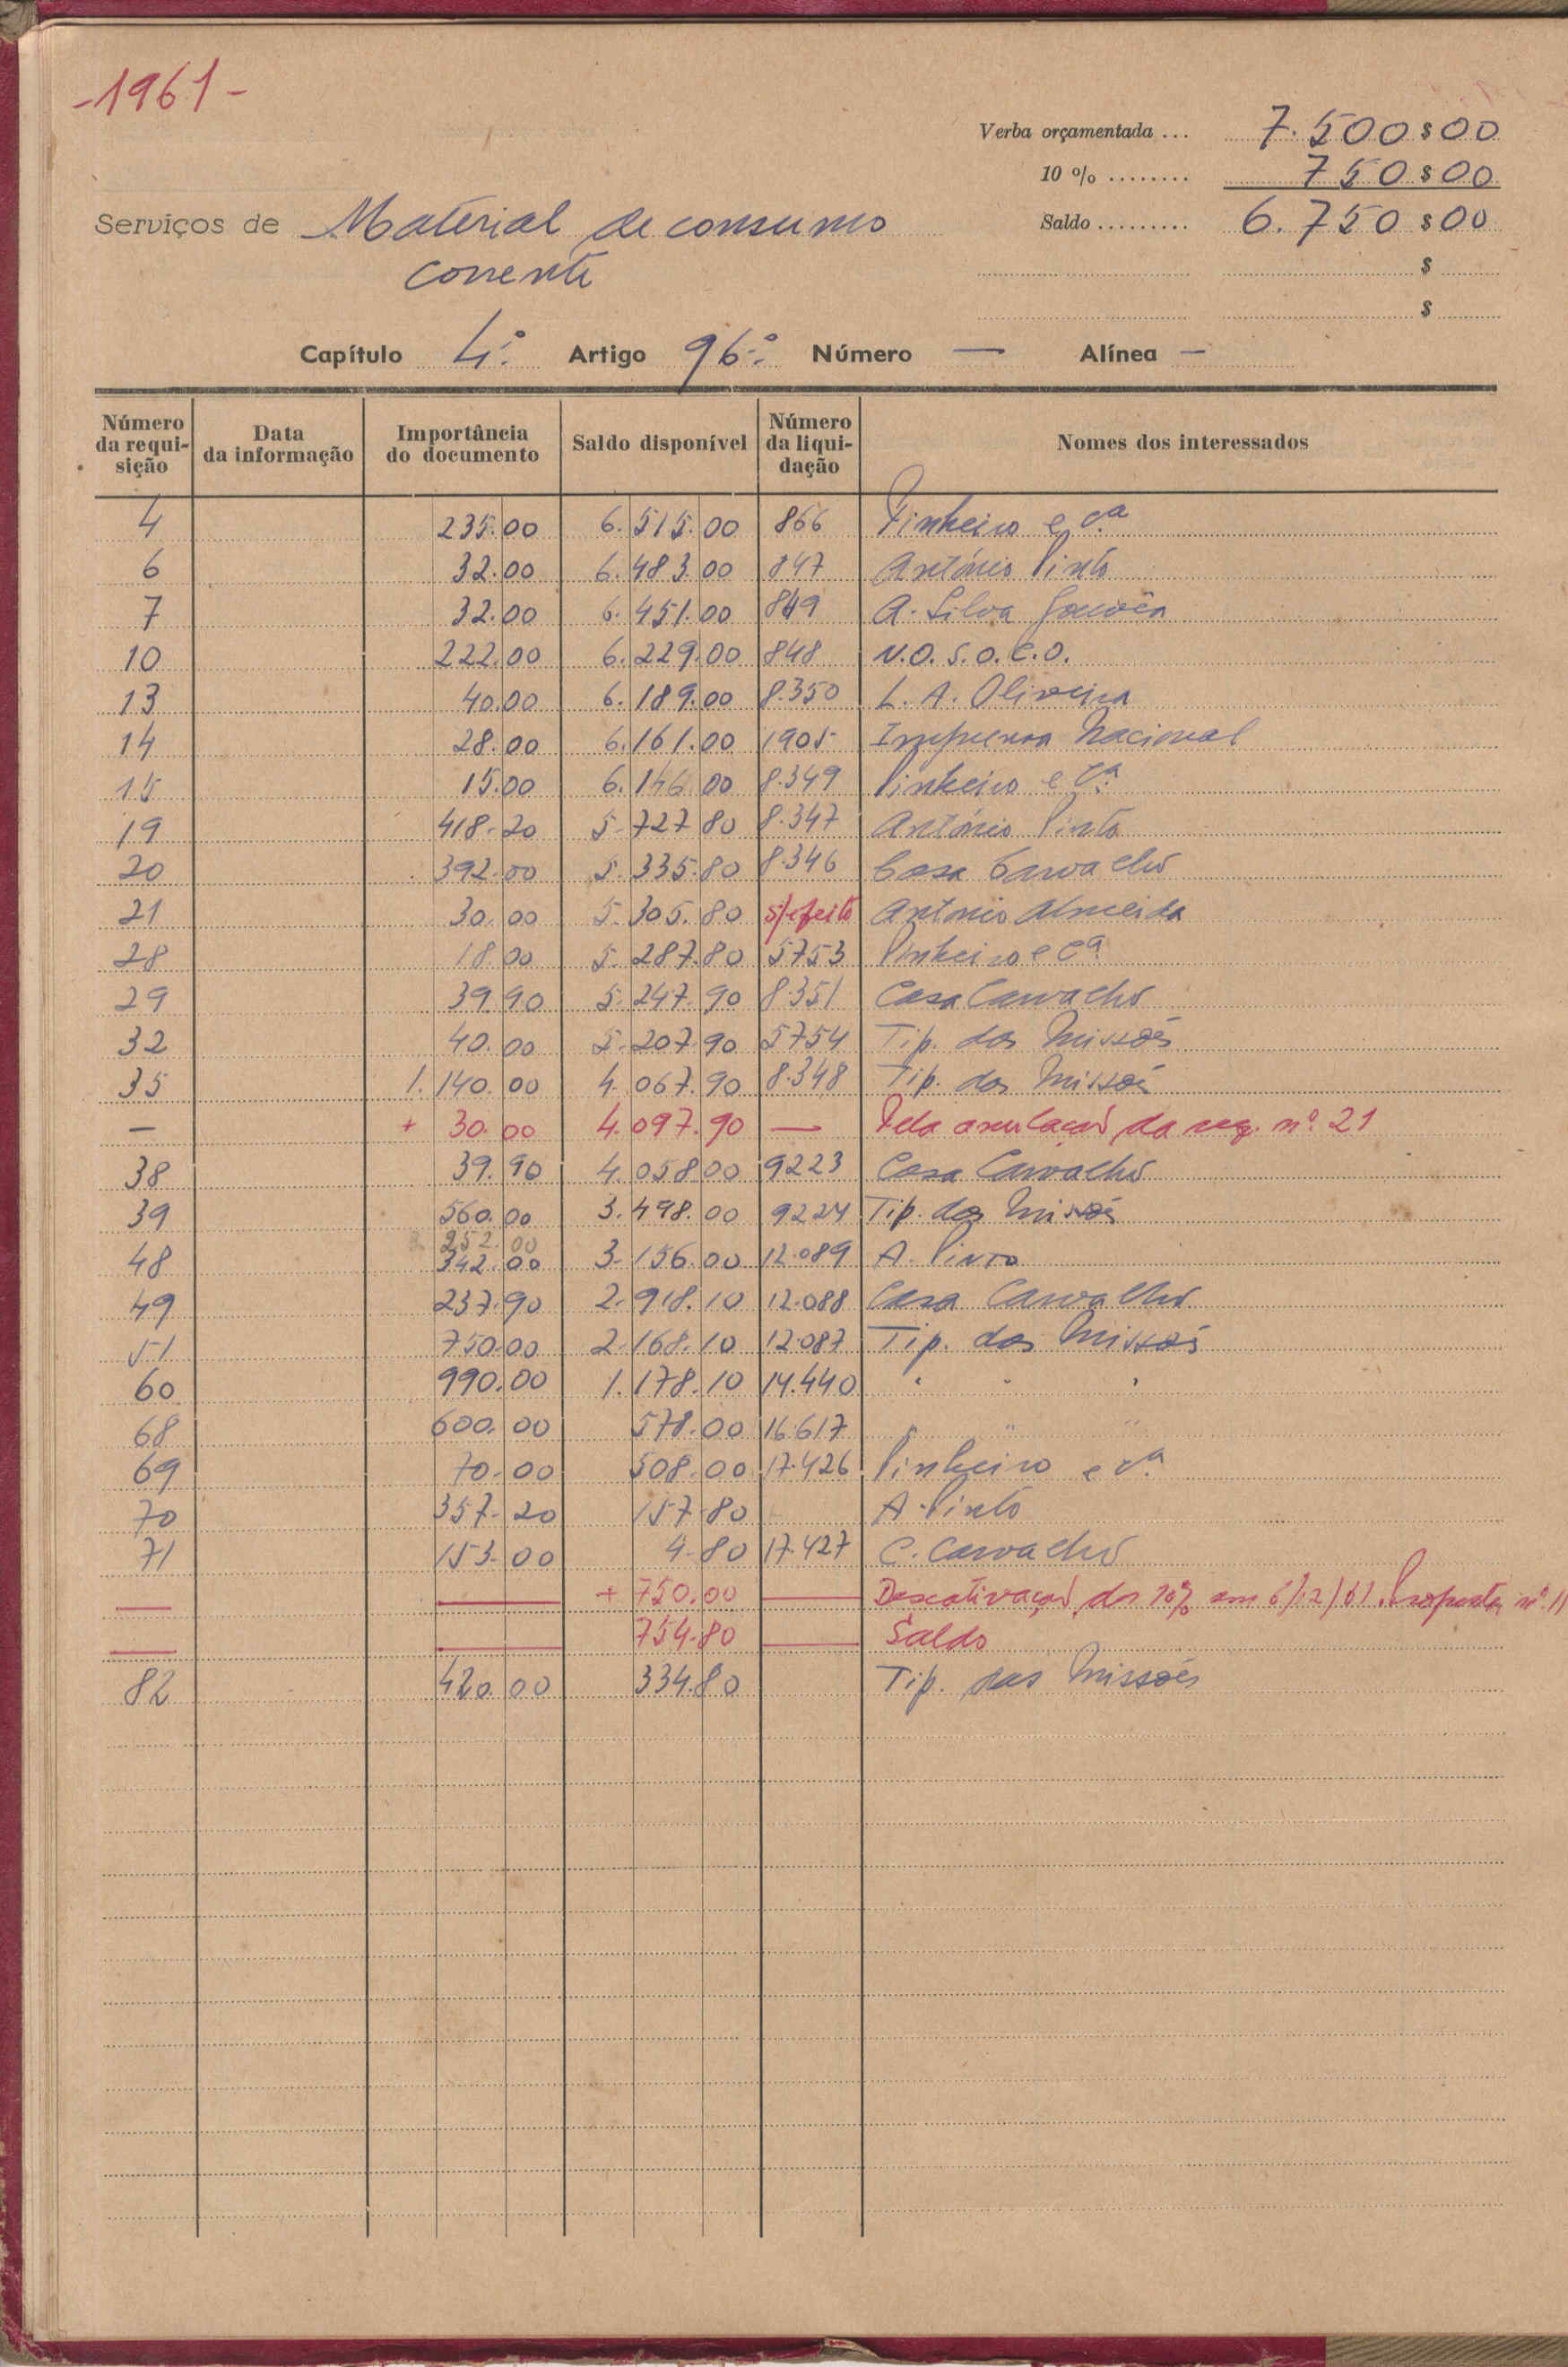 -1961-
Verba orçamentada ... 7.500$00
10 % ........ 750$00
Serviços de Material de consumo Saldo ......... 6.750$00
corrente $
$
Capítulo 4.º Artigo 96.º Número — Alínea —
Número da requi-sição Data da informação Importância do documento Saldo disponível Número da liqui-dação Nomes dos interessados
4 235.00 6.515.00 866 Pinheiro e C.ª
6 32.00 6.483.00 847 António Pinto
7 32.00 6.451.00 849 A. Silva Gouvêa
10 222.00 6.229.00 848 N.O.S.O.C.O.
13 40.00 6.189.00 8.350 L. A. Oliveira
14 28.00 6.161.00 1905 Imprensa Nacional
15 15.00 6.146.00 8.349 Pinheiro e C.ª
19 418.20 5.727.80 8.347 António Pinto
20 392.00 5.335.80 8.346 Casa Carvalho
21 30.00 5.305.80 s/efeito António Almeida
28 18.00 5.287.80 5753 Pinheiro e C.ª
29 39.90 5.247.90 8.351 Casa Carvalho
32 40.00 5.207.90 5754 Tip. das Missões
35 1.140.00 4.067.90 8.348 Tip. das Missões
— + 30.00 4.097.90 — Pela anulação da req. n.º 21
38 39.90 4.058.00 9223 Casa Carvalho
39 560.00 3.498.00 9224 Tip. das Missões
252.00
48 342.00 3.156.00 12.089 A. Pinto
49 237.90 2.918.10 12.088 Casa Carvalho
51 750.00 2.168.10 12.087 Tip. das Missões
60 990.00 1.178.10 14.440 " " "
68 600.00 578.00 16.617 " " "
69 70.00 508.00 17.426 Pinheiro e C.ª
70 357.20 157.80 A. Pinto
71 153.00 4.80 17.427 C. Carvalho
— — + 750.00 — Descativação dos 10% em 6/12/61. Proposta n.º 11
— — 754.80 — Saldo
82 420.00 334.80 Tip. das Missões